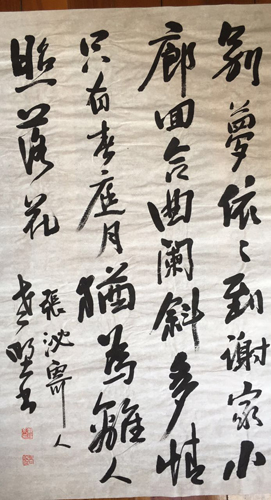 別夢依〻到謝家小
廊回合曲闌斜多情
只有春庭月猶為離人
照落花
張泌寄人